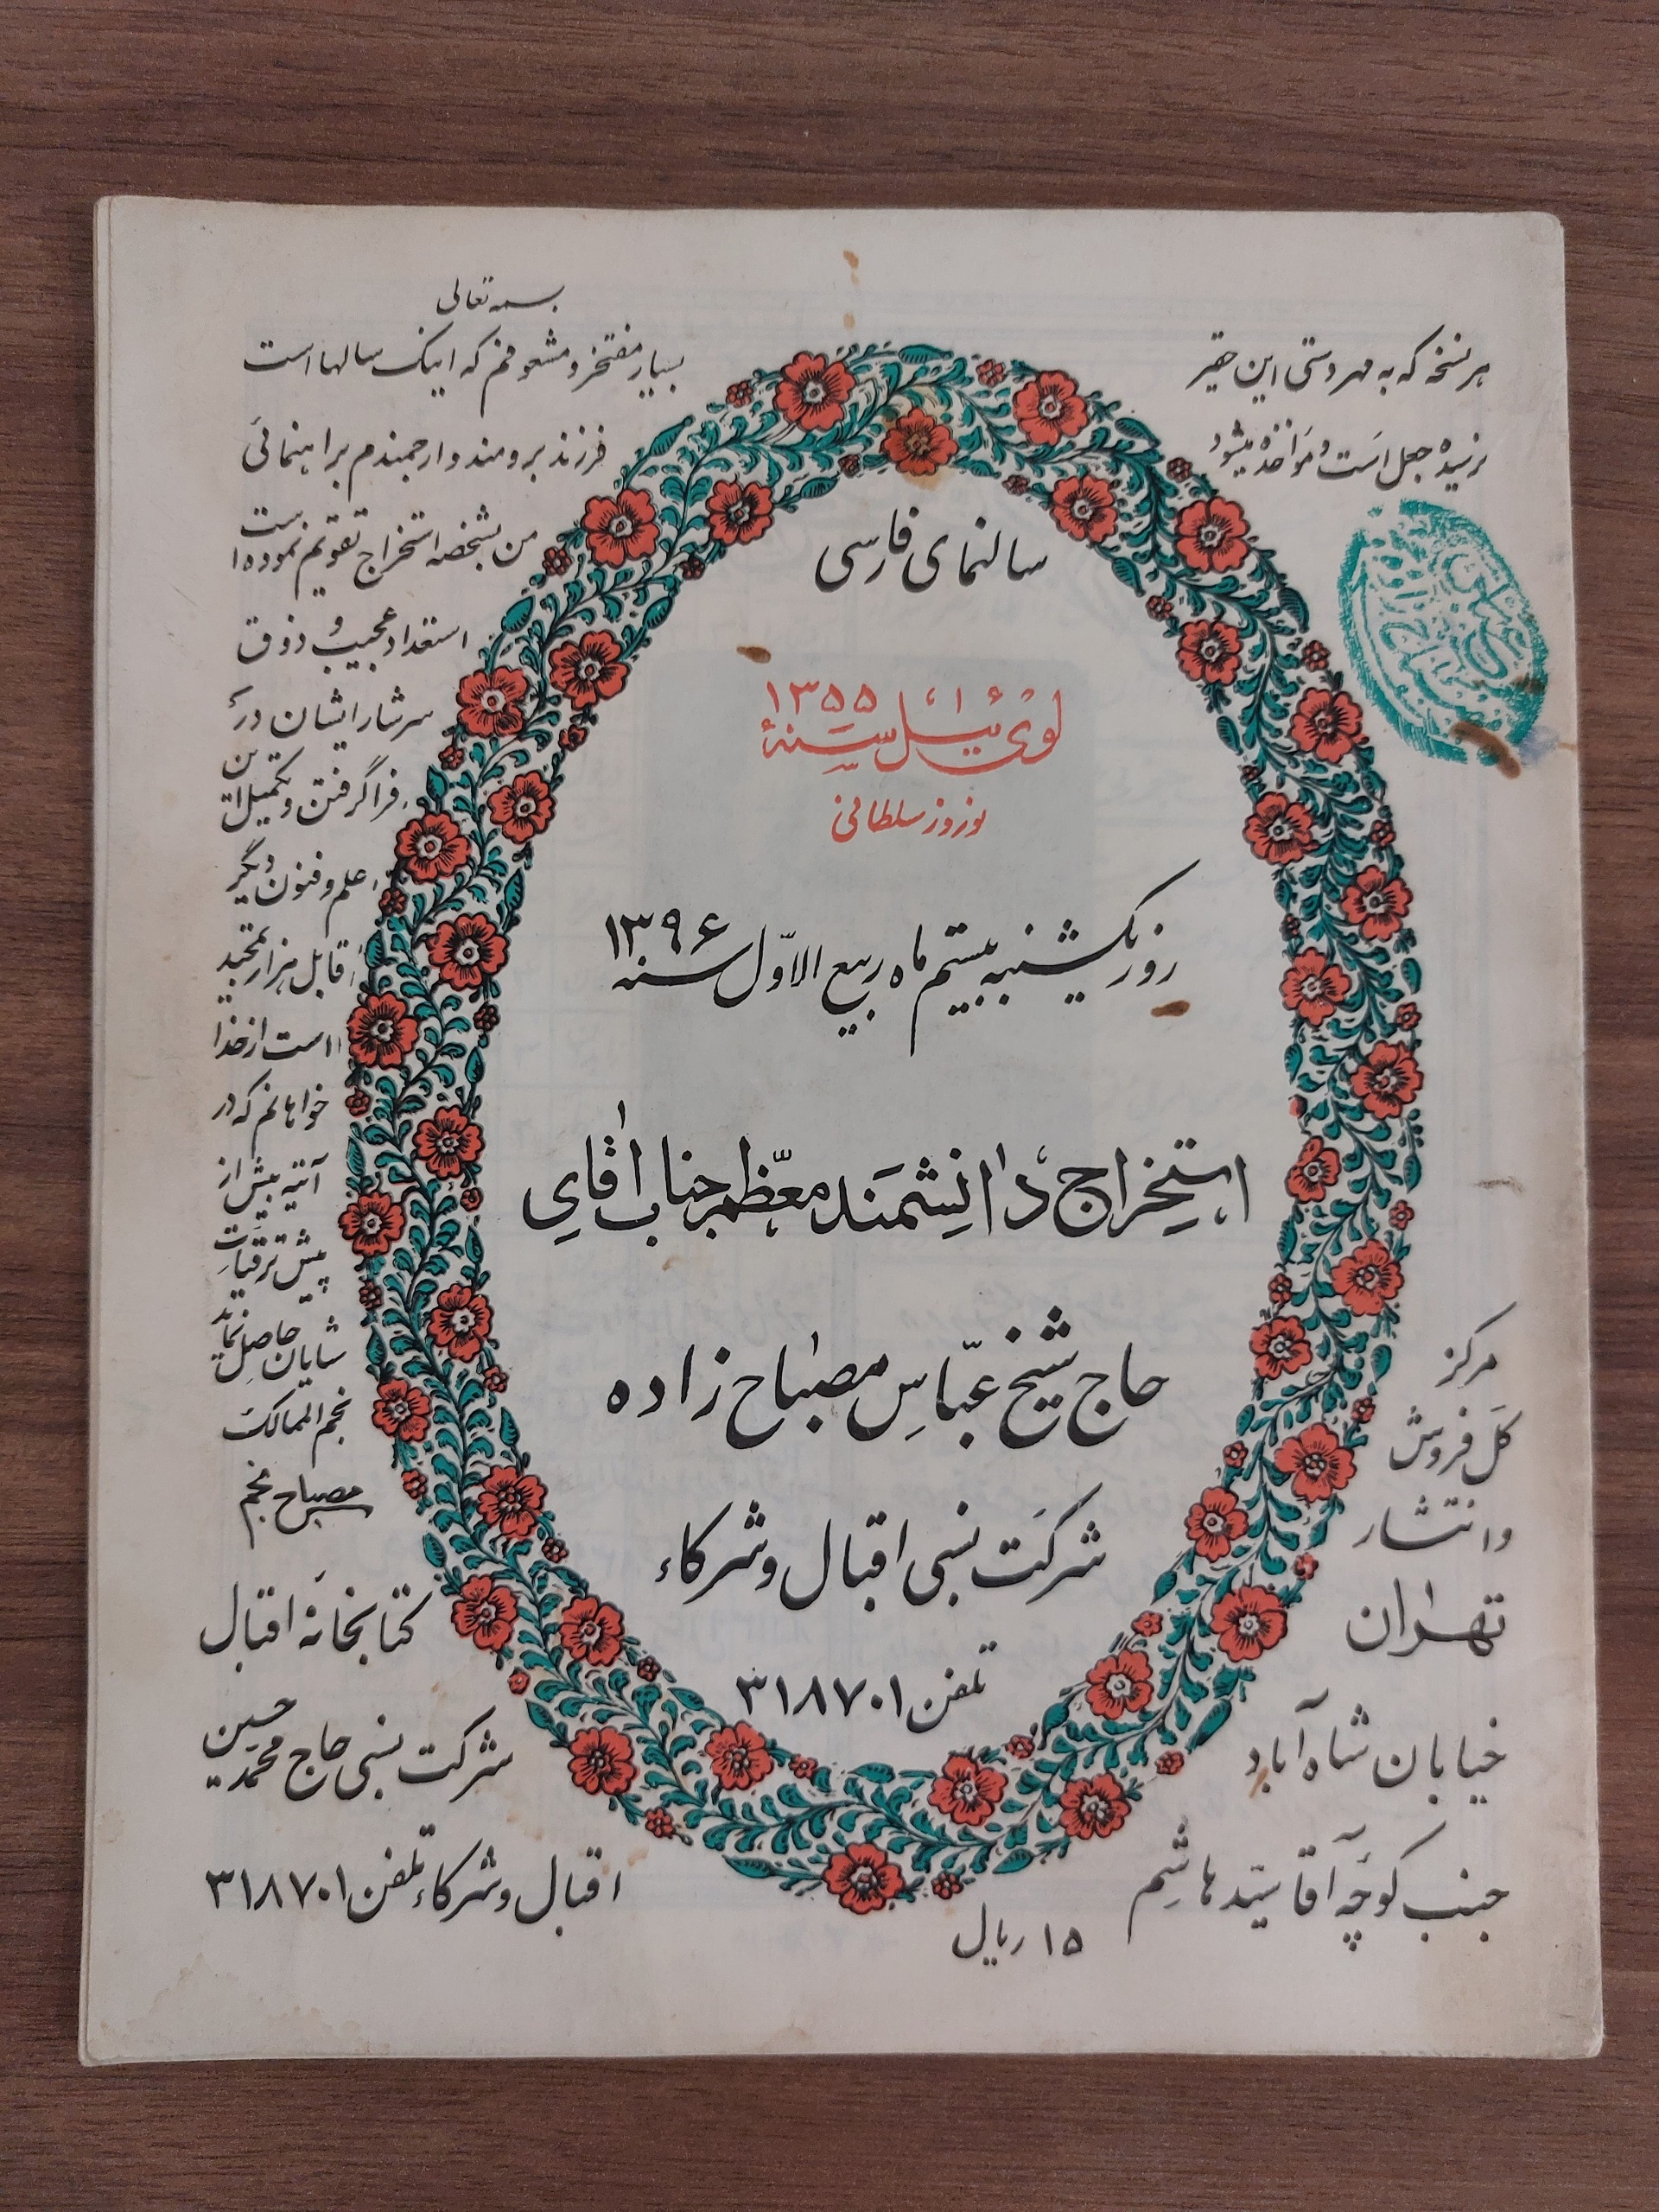 هر نسخه که به مهر دستی این حقیر
نرسیده جعل است و مؤاخذه میشود
بسمه تعالی
بسیار مفتخر و مشعوفم که اینک سالها است
فرزند برومند و ارجمندم براهنمائی
من بشخصه استخراج تقویم نموده است
استعداد عجیب و ذوق
سرشار ایشان در
فراگرفتن و تکمیل این
علم و فنون دیگر
قابل هزار تمجید
است از خدا
خواهانم که در
آتیه بیش از
پیش ترقیات
شایان حاصل نماید
نجم الممالک
مصباح منجم
سالنمای فارسی
لوی ئیل سنهٔ ۱۳۵۵
نوروز سلطانی
روز یکشنبه بیستم ماه ربیع الاوّل سنه ۱۳۹۶
استخراج دانشمند معظّم جناب آقای
حاج شیخ عبّاس مصباح زاده
شرکت نسبی اقبال و شرکاء
تلفن ۳۱۸۷۰۱
مرکز
کل فروش
و انتشار
تهران
خیابان شاه آباد
جنب کوچه آقا سیّد هاشم
کتابخانهٔ اقبال
شرکت نسبی حاج محمّد حسین
اقبال و شرکاء تلفن ۳۱۸۷۰۱
۱۵ ریال